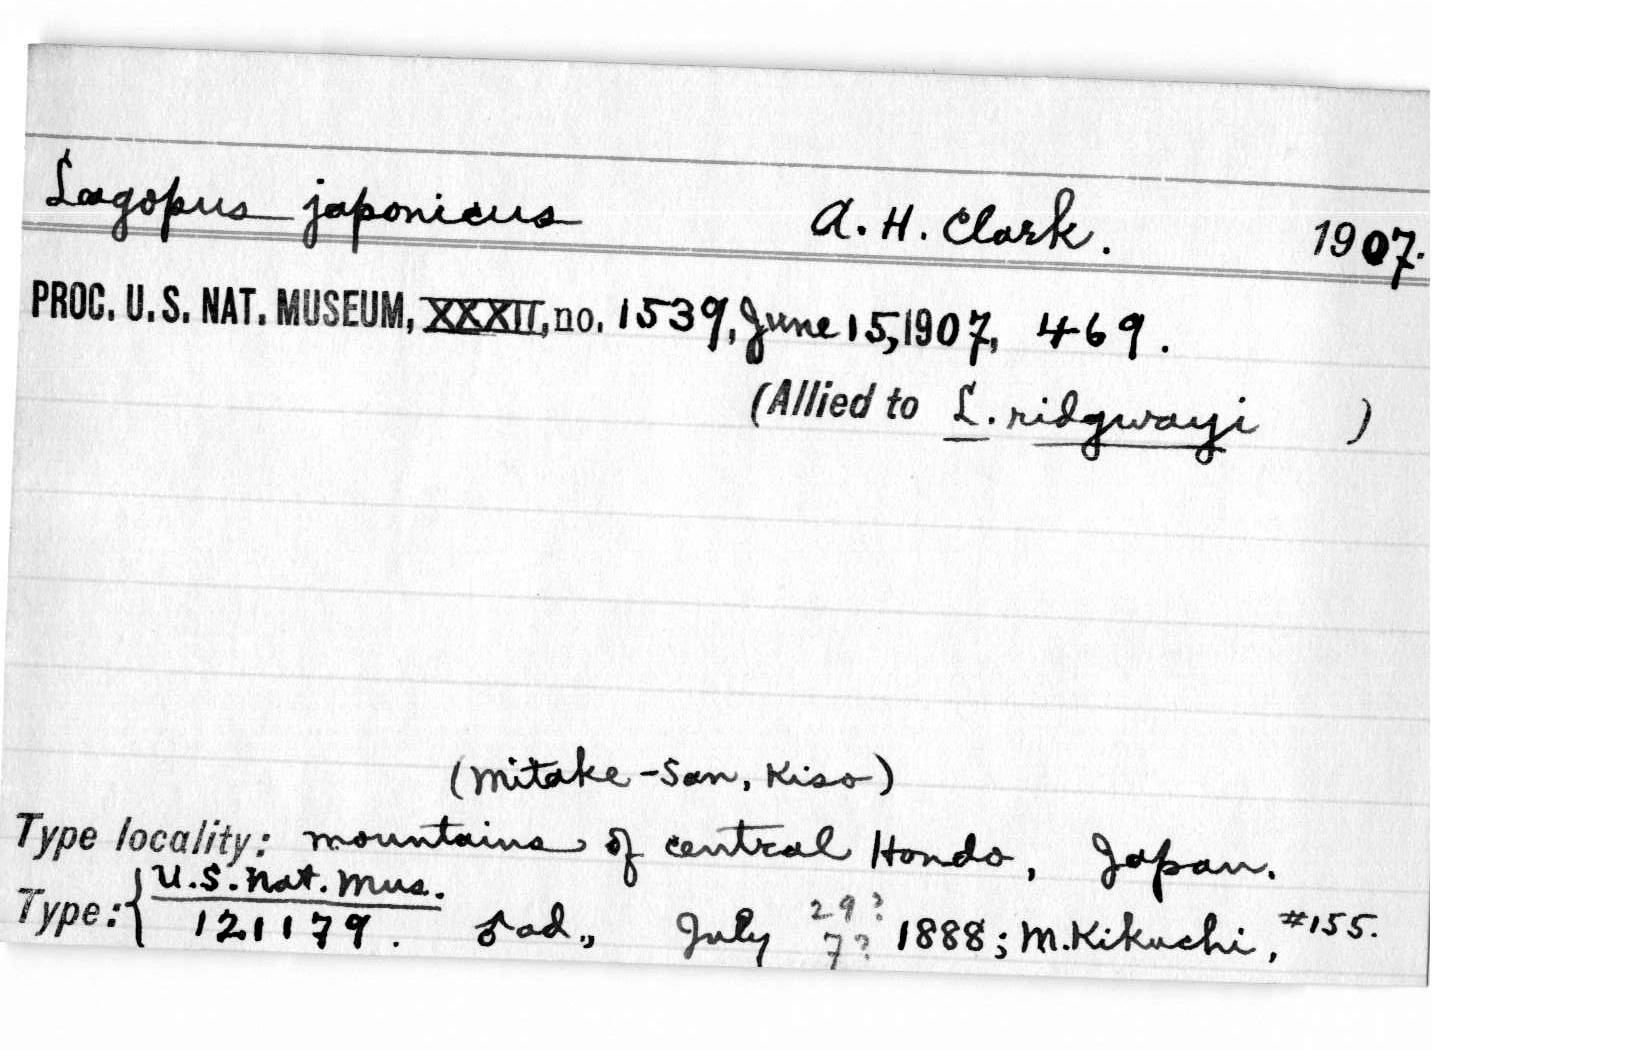 Lagopus japonicus A. H. Clark. 1907.
PROC. U. S. NAT. MUSEUM, XXXII, no. 1539, June 15, 1907, 469.
(Allied to L. ridgwayi )
(Mitake-San, Kiso)
Type locality: mountains of central Hondo, Japan.
Type: { U.S. Nat. Mus. 121179. ♂ ad., July 29? 7? 1888; M. Kikuchi, #155.